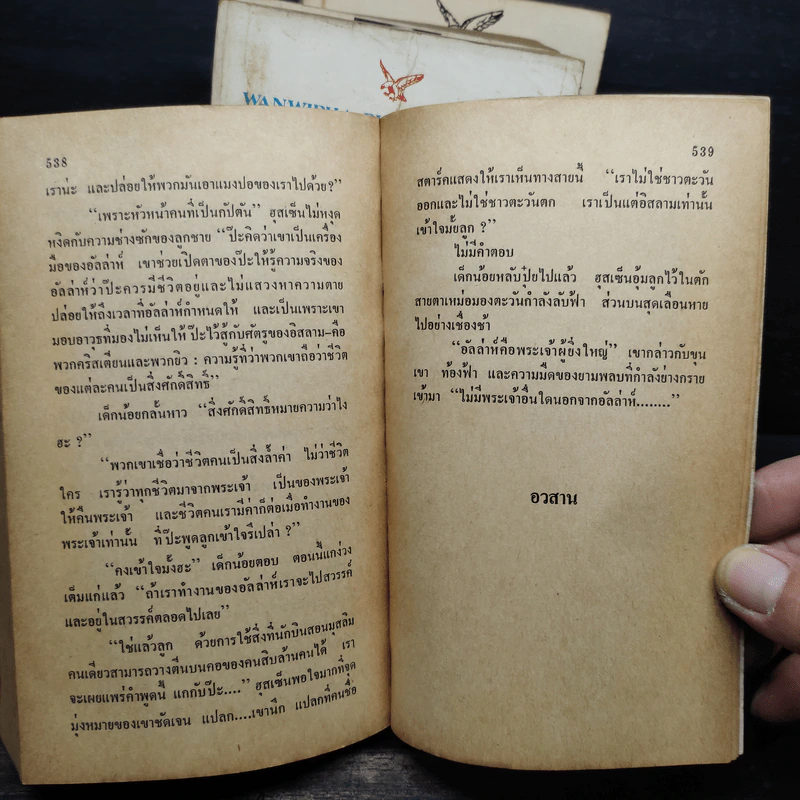 WANWIPHA
538
เราน่ะ และปล่อยให้พวกมันเอาแมงปอของเราไปด้วย?”
“เพราะหัวหน้าคนที่เป็นกัปตัน” ฮุสเซ็นไม่หงุด
หงิดกับความช่างซักของลูกชาย “ป๊ะคิดว่าเขาเป็นเครื่อง
มือของอัลล่าห์ เขาช่วยเปิดตาของป๊ะให้รู้ความจริงของ
อัลล่าห์ว่าป๊ะควรมีชีวิตอยู่และไม่แสวงหาความตาย
ปล่อยให้ถึงเวลาที่อัลล่าห์กำหนดให้ และเป็นเพราะเขา
มอบอาวุธที่มองไม่เห็นให้ป๊ะไว้สู้กับศัตรูของอิสลาม–คือ
พวกคริสเตียนและพวกยิว : ความรู้ที่ว่าพวกเขาถือว่าชีวิต
ของแต่ละคนเป็นสิ่งศักดิ์สิทธิ์”
เด็กน้อยกลั้นหาว “สิ่งศักดิ์สิทธิ์หมายความว่าไง
ฮะ ?”
“พวกเขาเชื่อว่าชีวิตคนเป็นสิ่งล้ำค่า ไม่ว่าชีวิต
ใคร เรารู้ว่าทุกชีวิตมาจากพระเจ้า เป็นของพระเจ้า
ให้คืนพระเจ้า และชีวิตคนเรามีค่าก็ต่อเมื่อทำงานของ
พระเจ้าเท่านั้น ที่ป๊ะพูดลูกเข้าใจรึเปล่า ?”
“คงเข้าใจมั้งฮะ” เด็กน้อยตอบ ตอนนี้แกง่วง
เต็มแก่แล้ว “ถ้าเราทำงานของอัลล่าห์เราจะไปสวรรค์
และอยู่ในสวรรค์ตลอดไปเลย”
“ใช่แล้วลูก ด้วยการใช้สิ่งที่นักบินสอนมุสลิม
คนเดียวสามารถวางตีนบนคอของคนสิบล้านคนได้ เรา
จะเผยแพร่คำพูดนี้ แกกับป๊ะ....” ฮุสเซ็นพอใจมากที่จุด
มุ่งหมายของเขาชัดเจน แปลก....เขานึก แปลกที่คนชื่อ
539
สตาร์คแสดงให้เราเห็นทางสายนี้ “เราไม่ใช่ชาวตะวัน
ออกและไม่ใช่ชาวตะวันตก เราเป็นแต่อิสลามเท่านั้น
เข้าใจมั้ยลูก ?”
ไม่มีคำตอบ
เด็กน้อยหลับปุ๋ยไปแล้ว ฮุสเซ็นอุ้มลูกไว้ในตัก
สายตาเหม่อมองตะวันกำลังลับฟ้า ส่วนบนสุดเลือนหาย
ไปอย่างเชื่องช้า
“อัลล่าห์คือพระเจ้าผู้ยิ่งใหญ่” เขากล่าวกับขุน
เขา ท้องฟ้า และความมืดของยามพลบที่กำลังย่างกราย
เข้ามา “ไม่มีพระเจ้าอื่นใดนอกจากอัลล่าห์........”
อวสาน